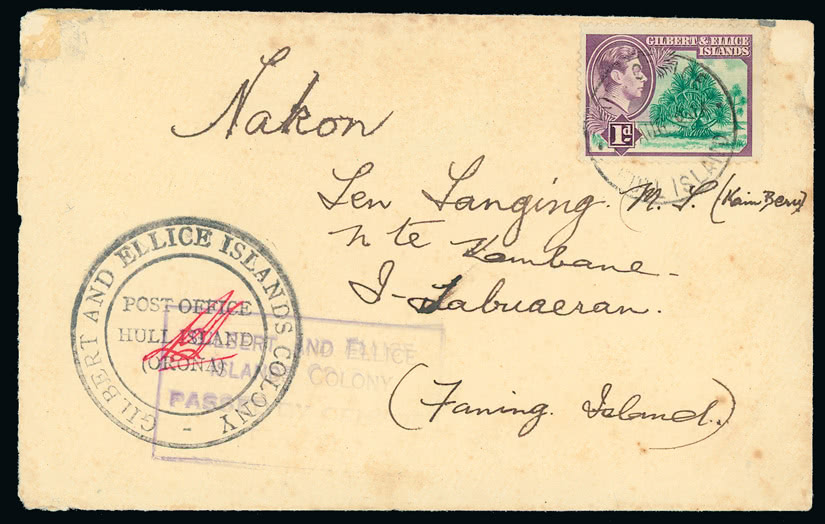 GILBERT & ELLICE
ISLANDS
1d
HULL ISLAND
Nakon
Sen Langing. M. S. (Kain Beru)
n te Kambane -
I-Tabuaeran.
(Faning. Island.)
GILBERT AND ELLICE ISLANDS COLONY
POST OFFICE
HULL ISLAND
(ORONA)
GILBERT AND ELLICE
ISLANDS COLONY
PASSED BY